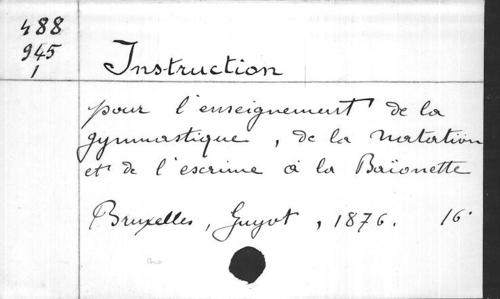 488
945
1
Instruction
pour l'enseignement de la
gymnastique, de la natation
et de l'escrime à la Baïonette
Bruxelles, Guyot, 1876. 16°